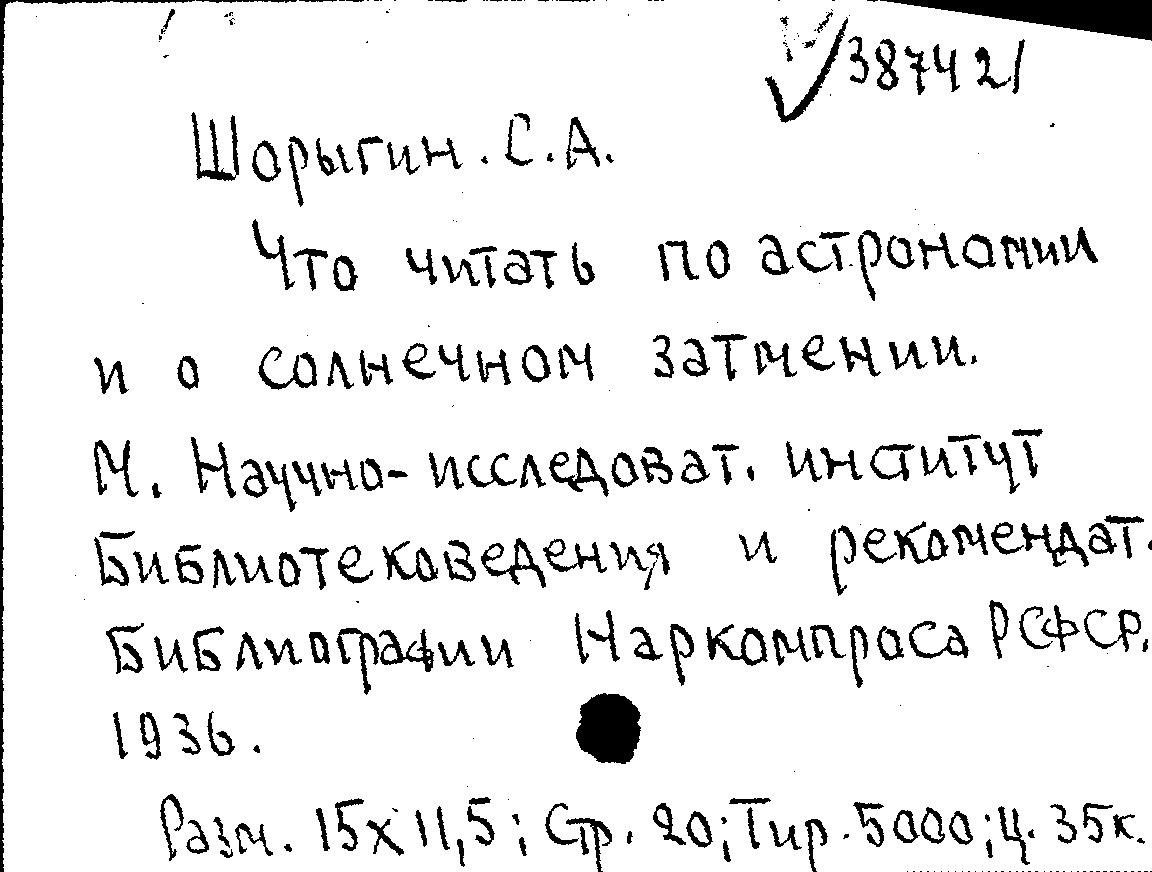 387421
Шорыгин. С.А.
Что читать по астрономии
и о солнечном затмении.
М. Научно-исследоват. институт
Библиотековедения и рекомендат.
Библиографии Наркомпроса РСФСР.
1936.
Разм. 15х11,5; Стр. 20; Тир. 5000; ц. 35к.